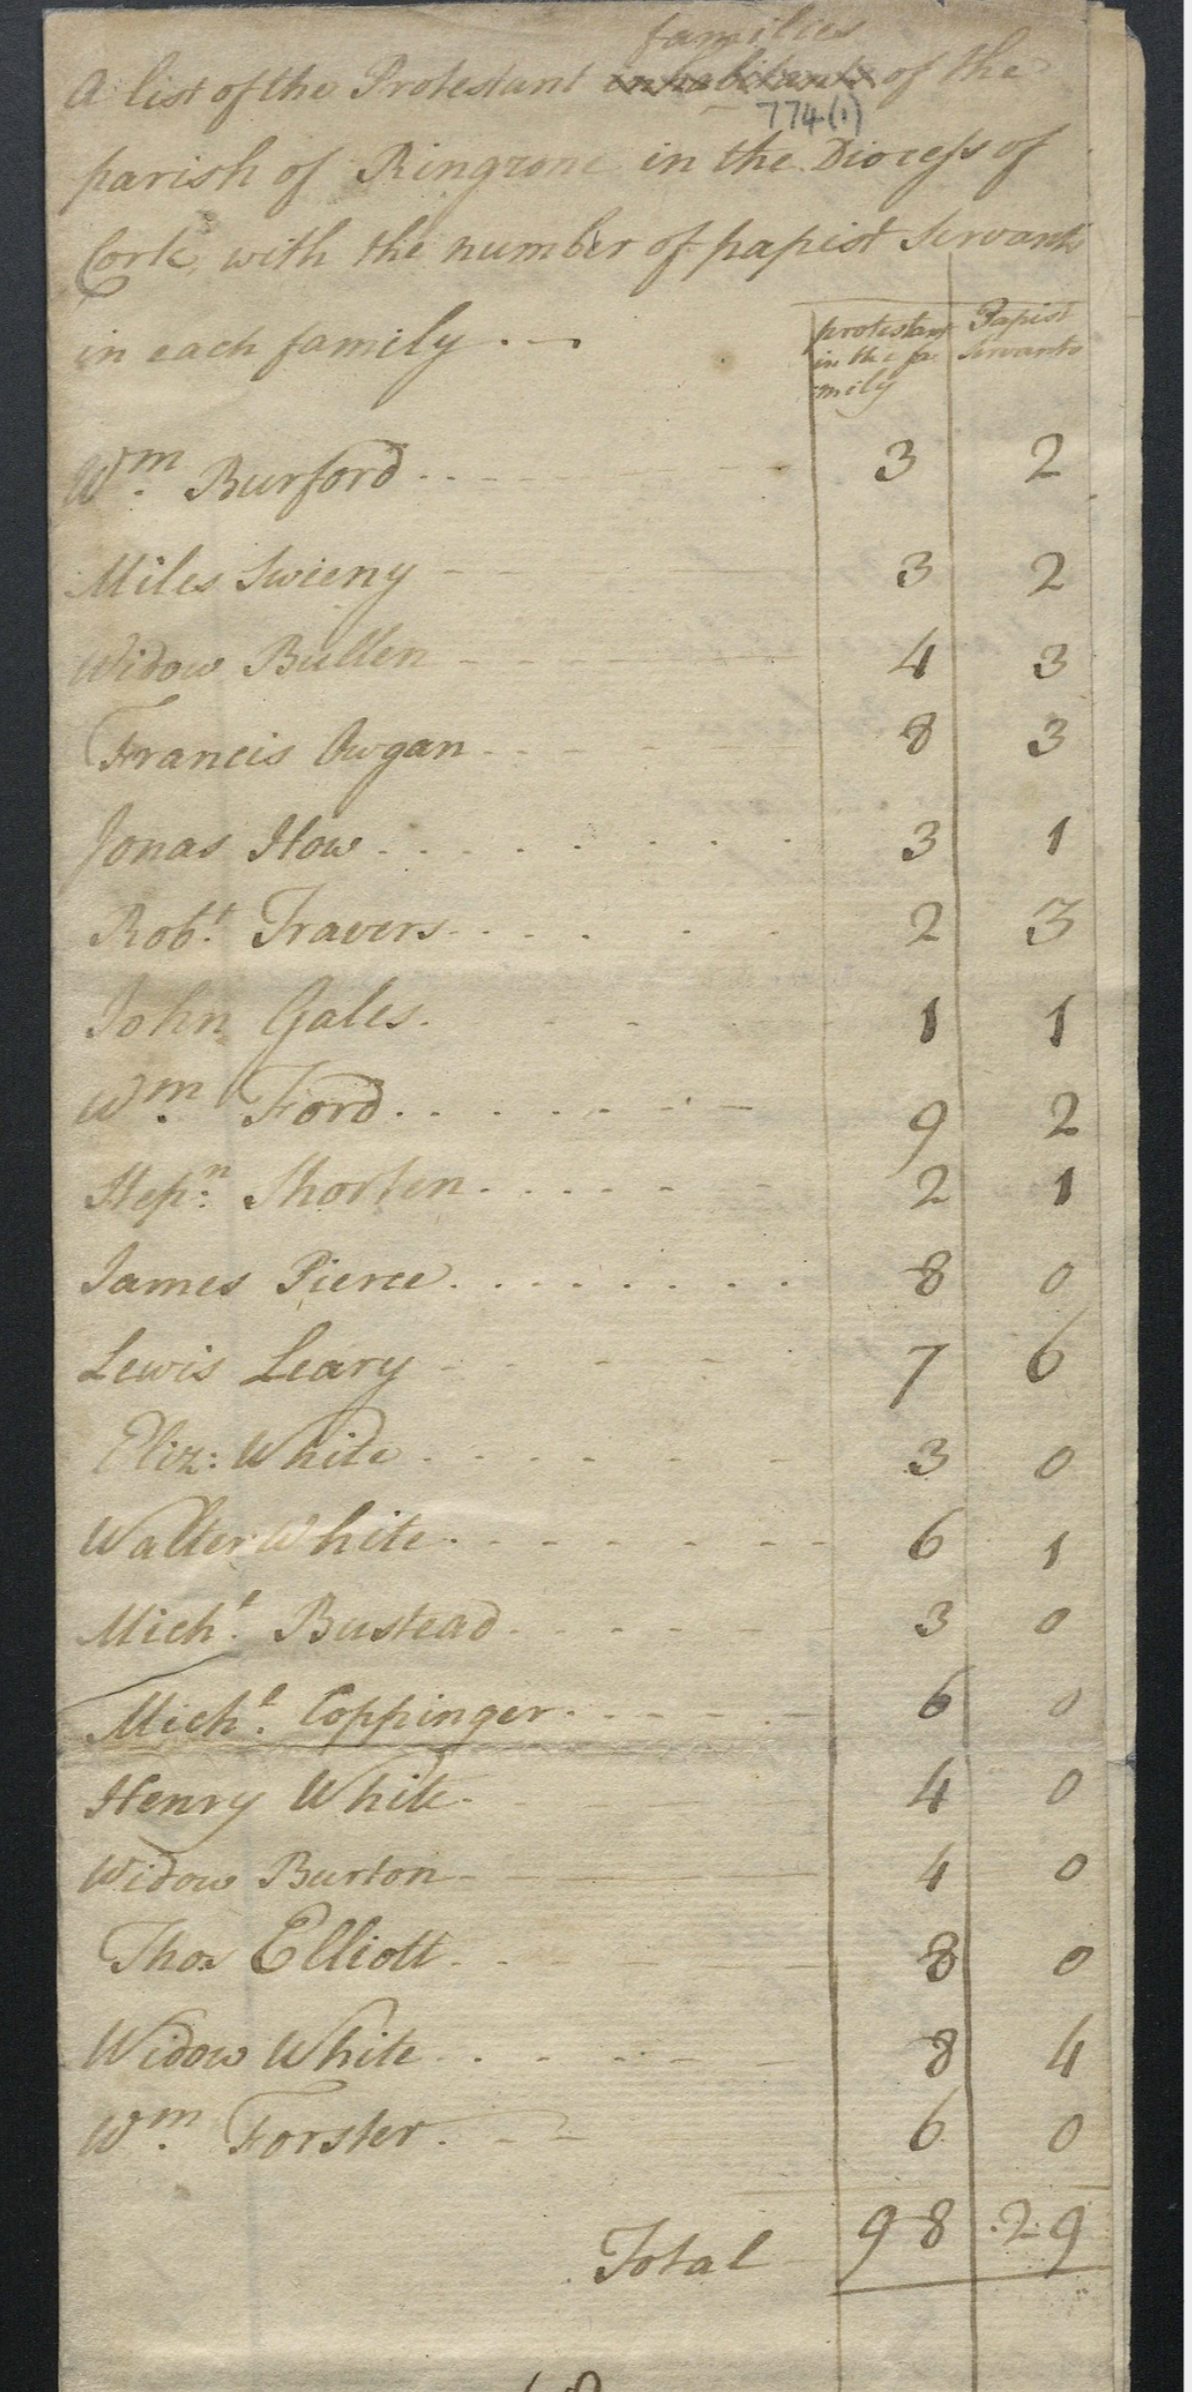 families
A list of the Protestant inhabitants of the
774(1)
parish of Ringrone in the Diocess of
Cork, with the number of papist Servants
in each family . ~
protestant in the fa- mily
Papist Servants
Wm. Burford 3 2
Miles Swieny 3 2
Widow Bullen 4 3
Francis Owgan 8 3
Jonas How 3 1
Robt. Travers 2 3
John Gales 1 1
Wm. Ford 9 2
Stepn: Shorten 2 1
James Pierce 8 0
Lewis Leary 7 6
Eliz: White 3 0
Walter White 6 1
Michl. Bustead 3 0
Michl. Coppinger 6 0
Henry White 4 0
Widow Burton 4 0
Thos Elliott 8 0
Widow White 8 4
Wm. Forster 6 0
Total 98 29